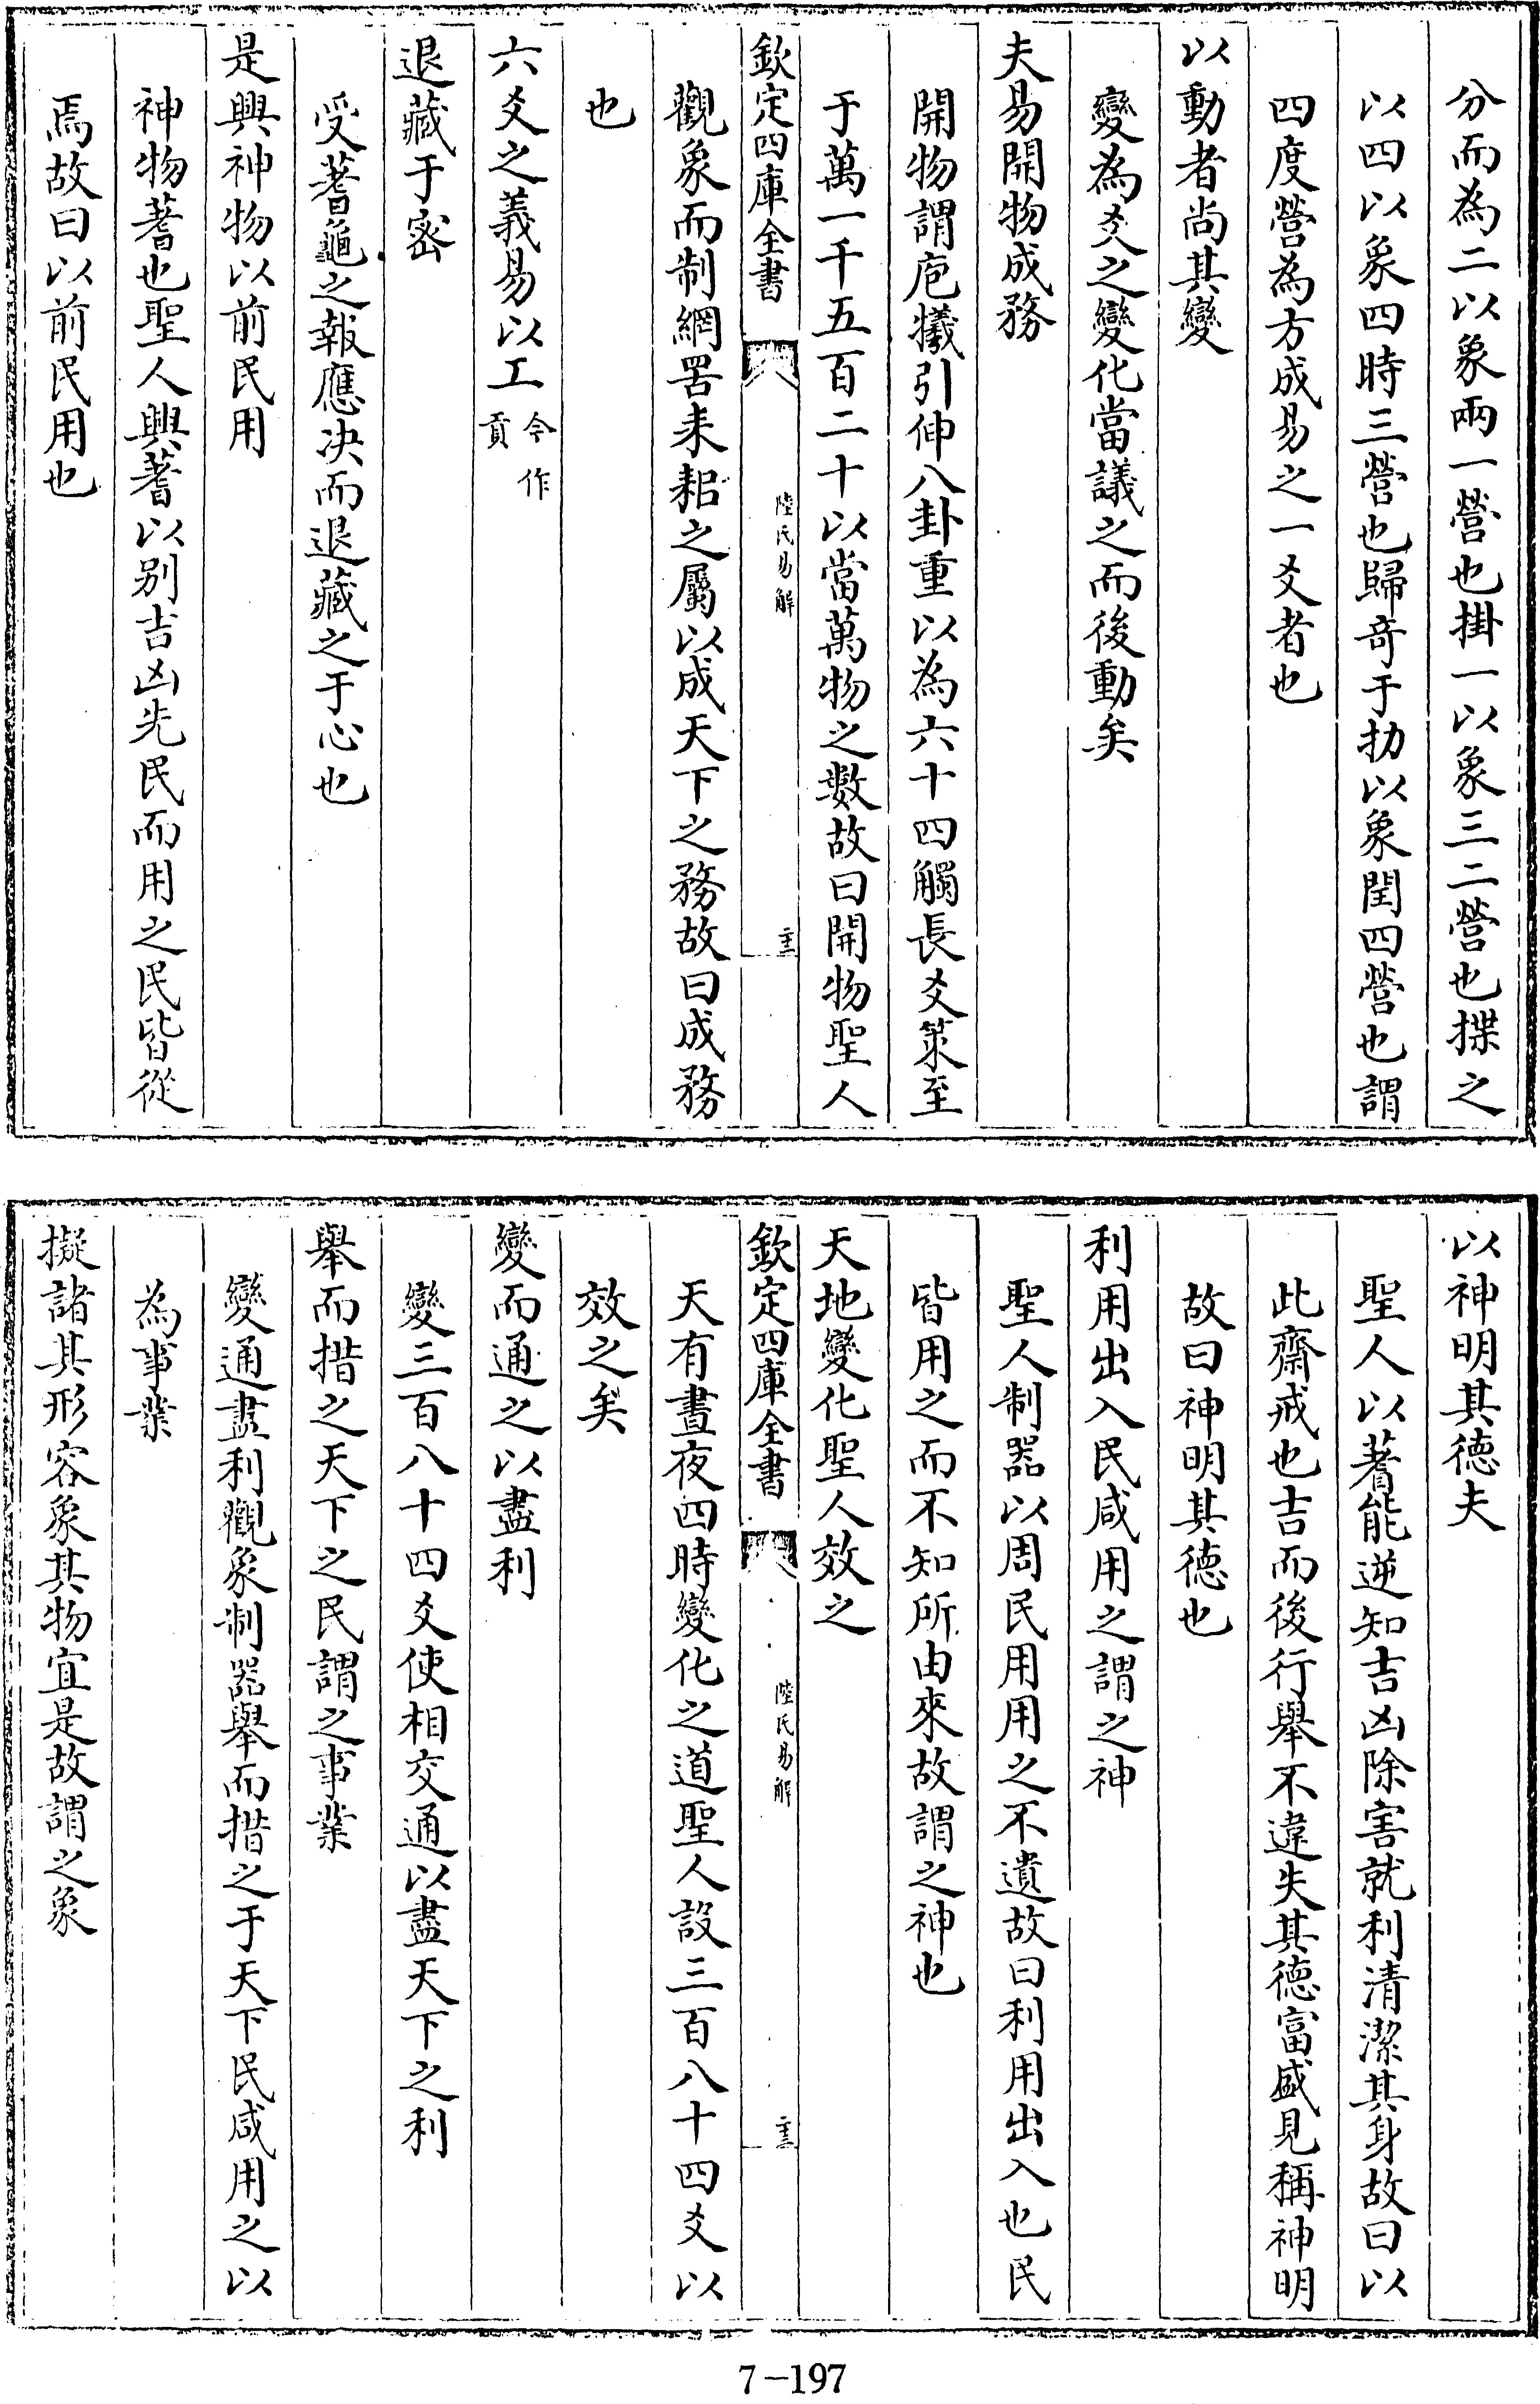 分而為二以象兩一營也掛一以象三二營也揲之
以四以象四時三營也歸奇于扐以象閏四營也謂
四度營為方成易之一爻者也
以動者尚其變
變為爻之變化當議之而後動矣
夫易開物成務
開物謂庖犧引伸八卦重以為六十四觸長爻策至
于萬一千五百二十以當萬物之數故曰開物聖人
欽定四庫全書
陸氏易解
觀象而制網罟耒耜之屬以成天下之務故曰成務
也
六爻之義易以工今作貢
退藏于密
受蓍龜之報應决而退藏之于心也
是興神物以前民用
神物蓍也聖人興蓍以别吉凶先民而用之民皆從
焉故曰以前民用也
以神明其德夫
聖人以蓍能逆知吉凶除害就利清潔其身故曰以
此齋戒也吉而後行舉不違失其德富盛見稱神明
故曰神明其德也
利用出入民咸用之謂之神
聖人制器以周民用用之不遺故曰利用出入也民
皆用之而不知所由來故謂之神也
天地變化聖人效之
欽定四庫全書
陸氏易解
天有晝夜四時變化之道聖人設三百八十四爻以
效之矣
變而通之以盡利
變三百八十四爻使相交通以盡天下之利
舉而措之天下之民謂之事業
變通盡利觀象制器舉而措之于天下民咸用之以
為事業
擬諸其形容象其物宜是故謂之象
7-197